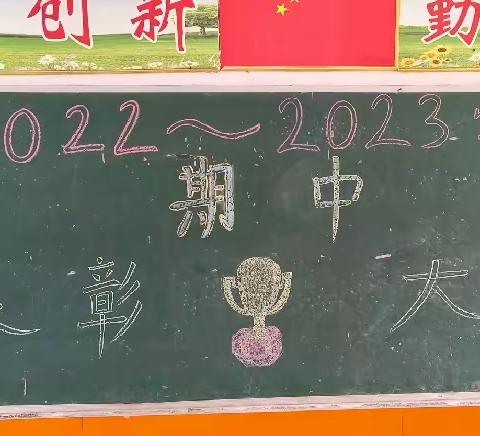 创新 勤
2022～2023
期中
表彰大